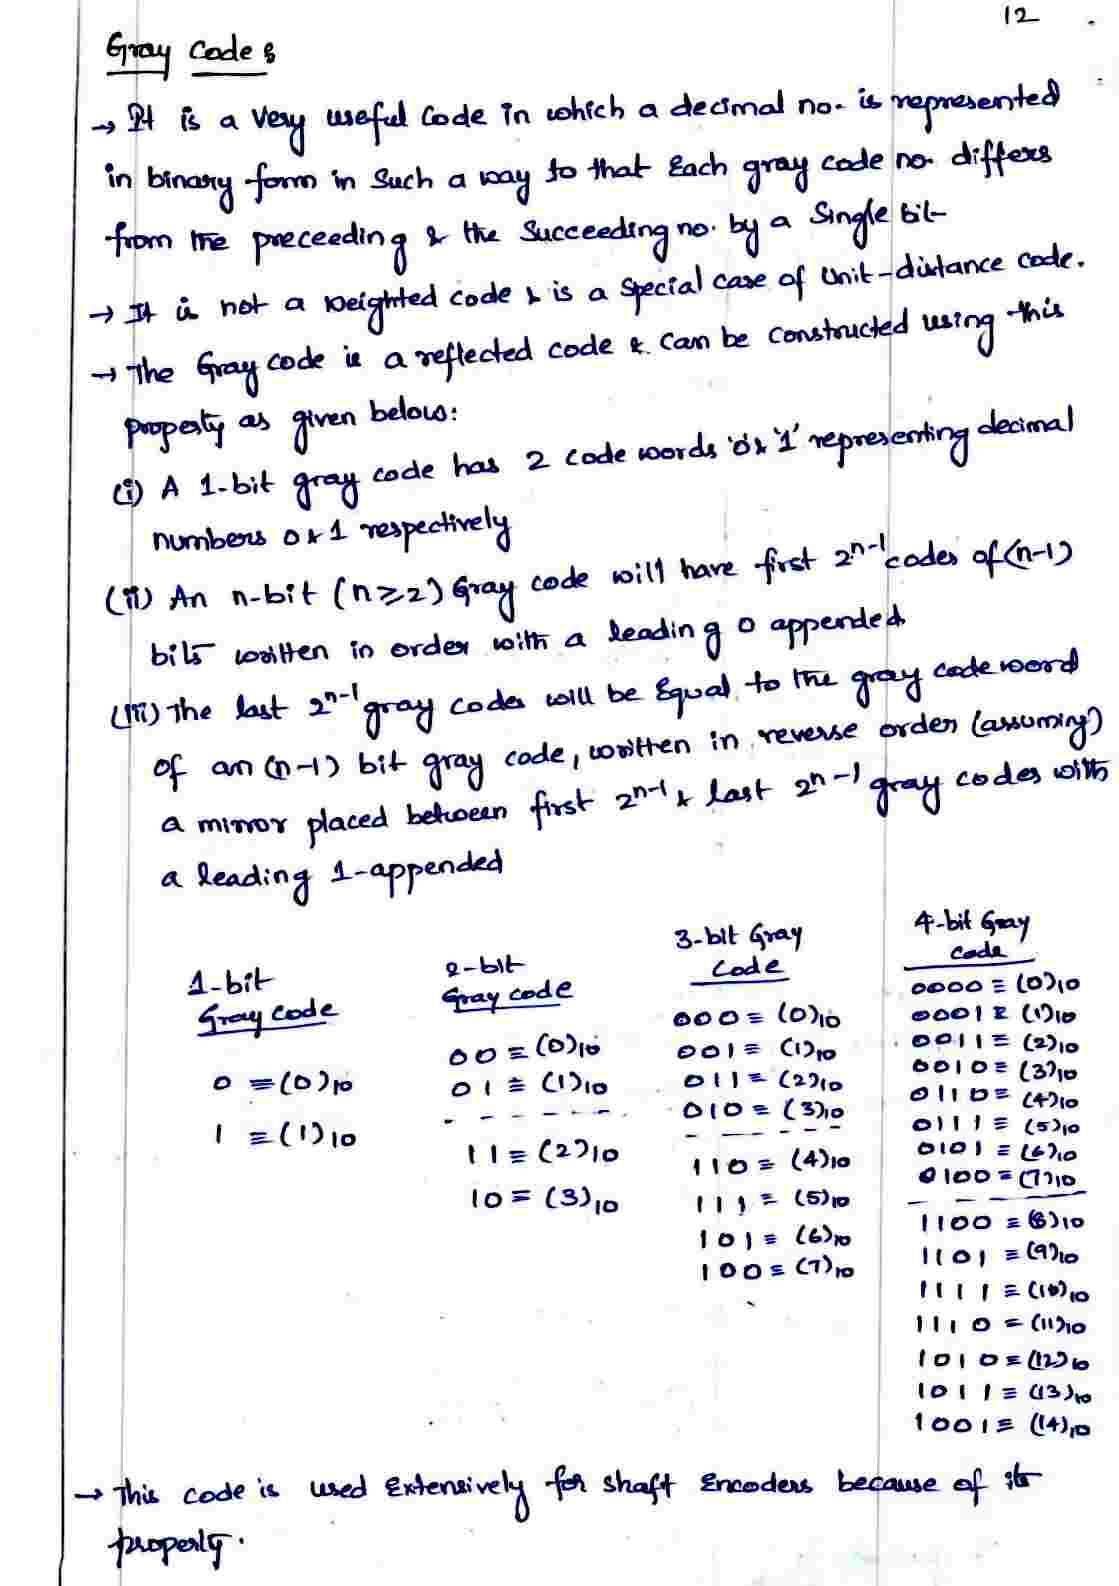 12
Gray Code :
→ It is a very useful code in which a decimal no. is represented
in binary form in such a way to that Each gray code no. differs
from the preceeding & the succeeding no. by a single bit-
→ It is not a weighted code & is a special case of unit-distance code.
→ The Gray code is a reflected code & can be constructed using this
property as given below:
(i) A 1-bit gray code has 2 code words '0' & '1' representing decimal
numbers 0 & 1 respectively
(ii) An n-bit (n≥2) Gray code will have first 2^n-1 codes of (n-1)
bits written in order with a leading 0 appended
(iii) The last 2^n-1 gray codes will be Equal to the gray code word
of an (n-1) bit gray code, written in reverse order (assuming)
a mirror placed between first 2^n-1 & last 2^n-1 gray codes with
a leading 1-appended
1-bit
Gray code
0 ≡ (0)10
1 ≡ (1)10
2-bit
Gray code
00 ≡ (0)10
01 ≡ (1)10
11 ≡ (2)10
10 ≡ (3)10
3-bit Gray
Code
000 ≡ (0)10
001 ≡ (1)10
011 ≡ (2)10
010 ≡ (3)10
110 ≡ (4)10
111 ≡ (5)10
101 ≡ (6)10
100 ≡ (7)10
4-bit Gray
Code
0000 ≡ (0)10
0001 ≡ (1)10
0011 ≡ (2)10
0010 ≡ (3)10
0110 ≡ (4)10
0111 ≡ (5)10
0101 ≡ (6)10
0100 ≡ (7)10
1100 ≡ (8)10
1101 ≡ (9)10
1111 ≡ (10)10
1110 ≡ (11)10
1010 ≡ (12)10
1011 ≡ (13)10
1001 ≡ (14)10
→ This code is used Extensively for shaft Encoders because of its
property.